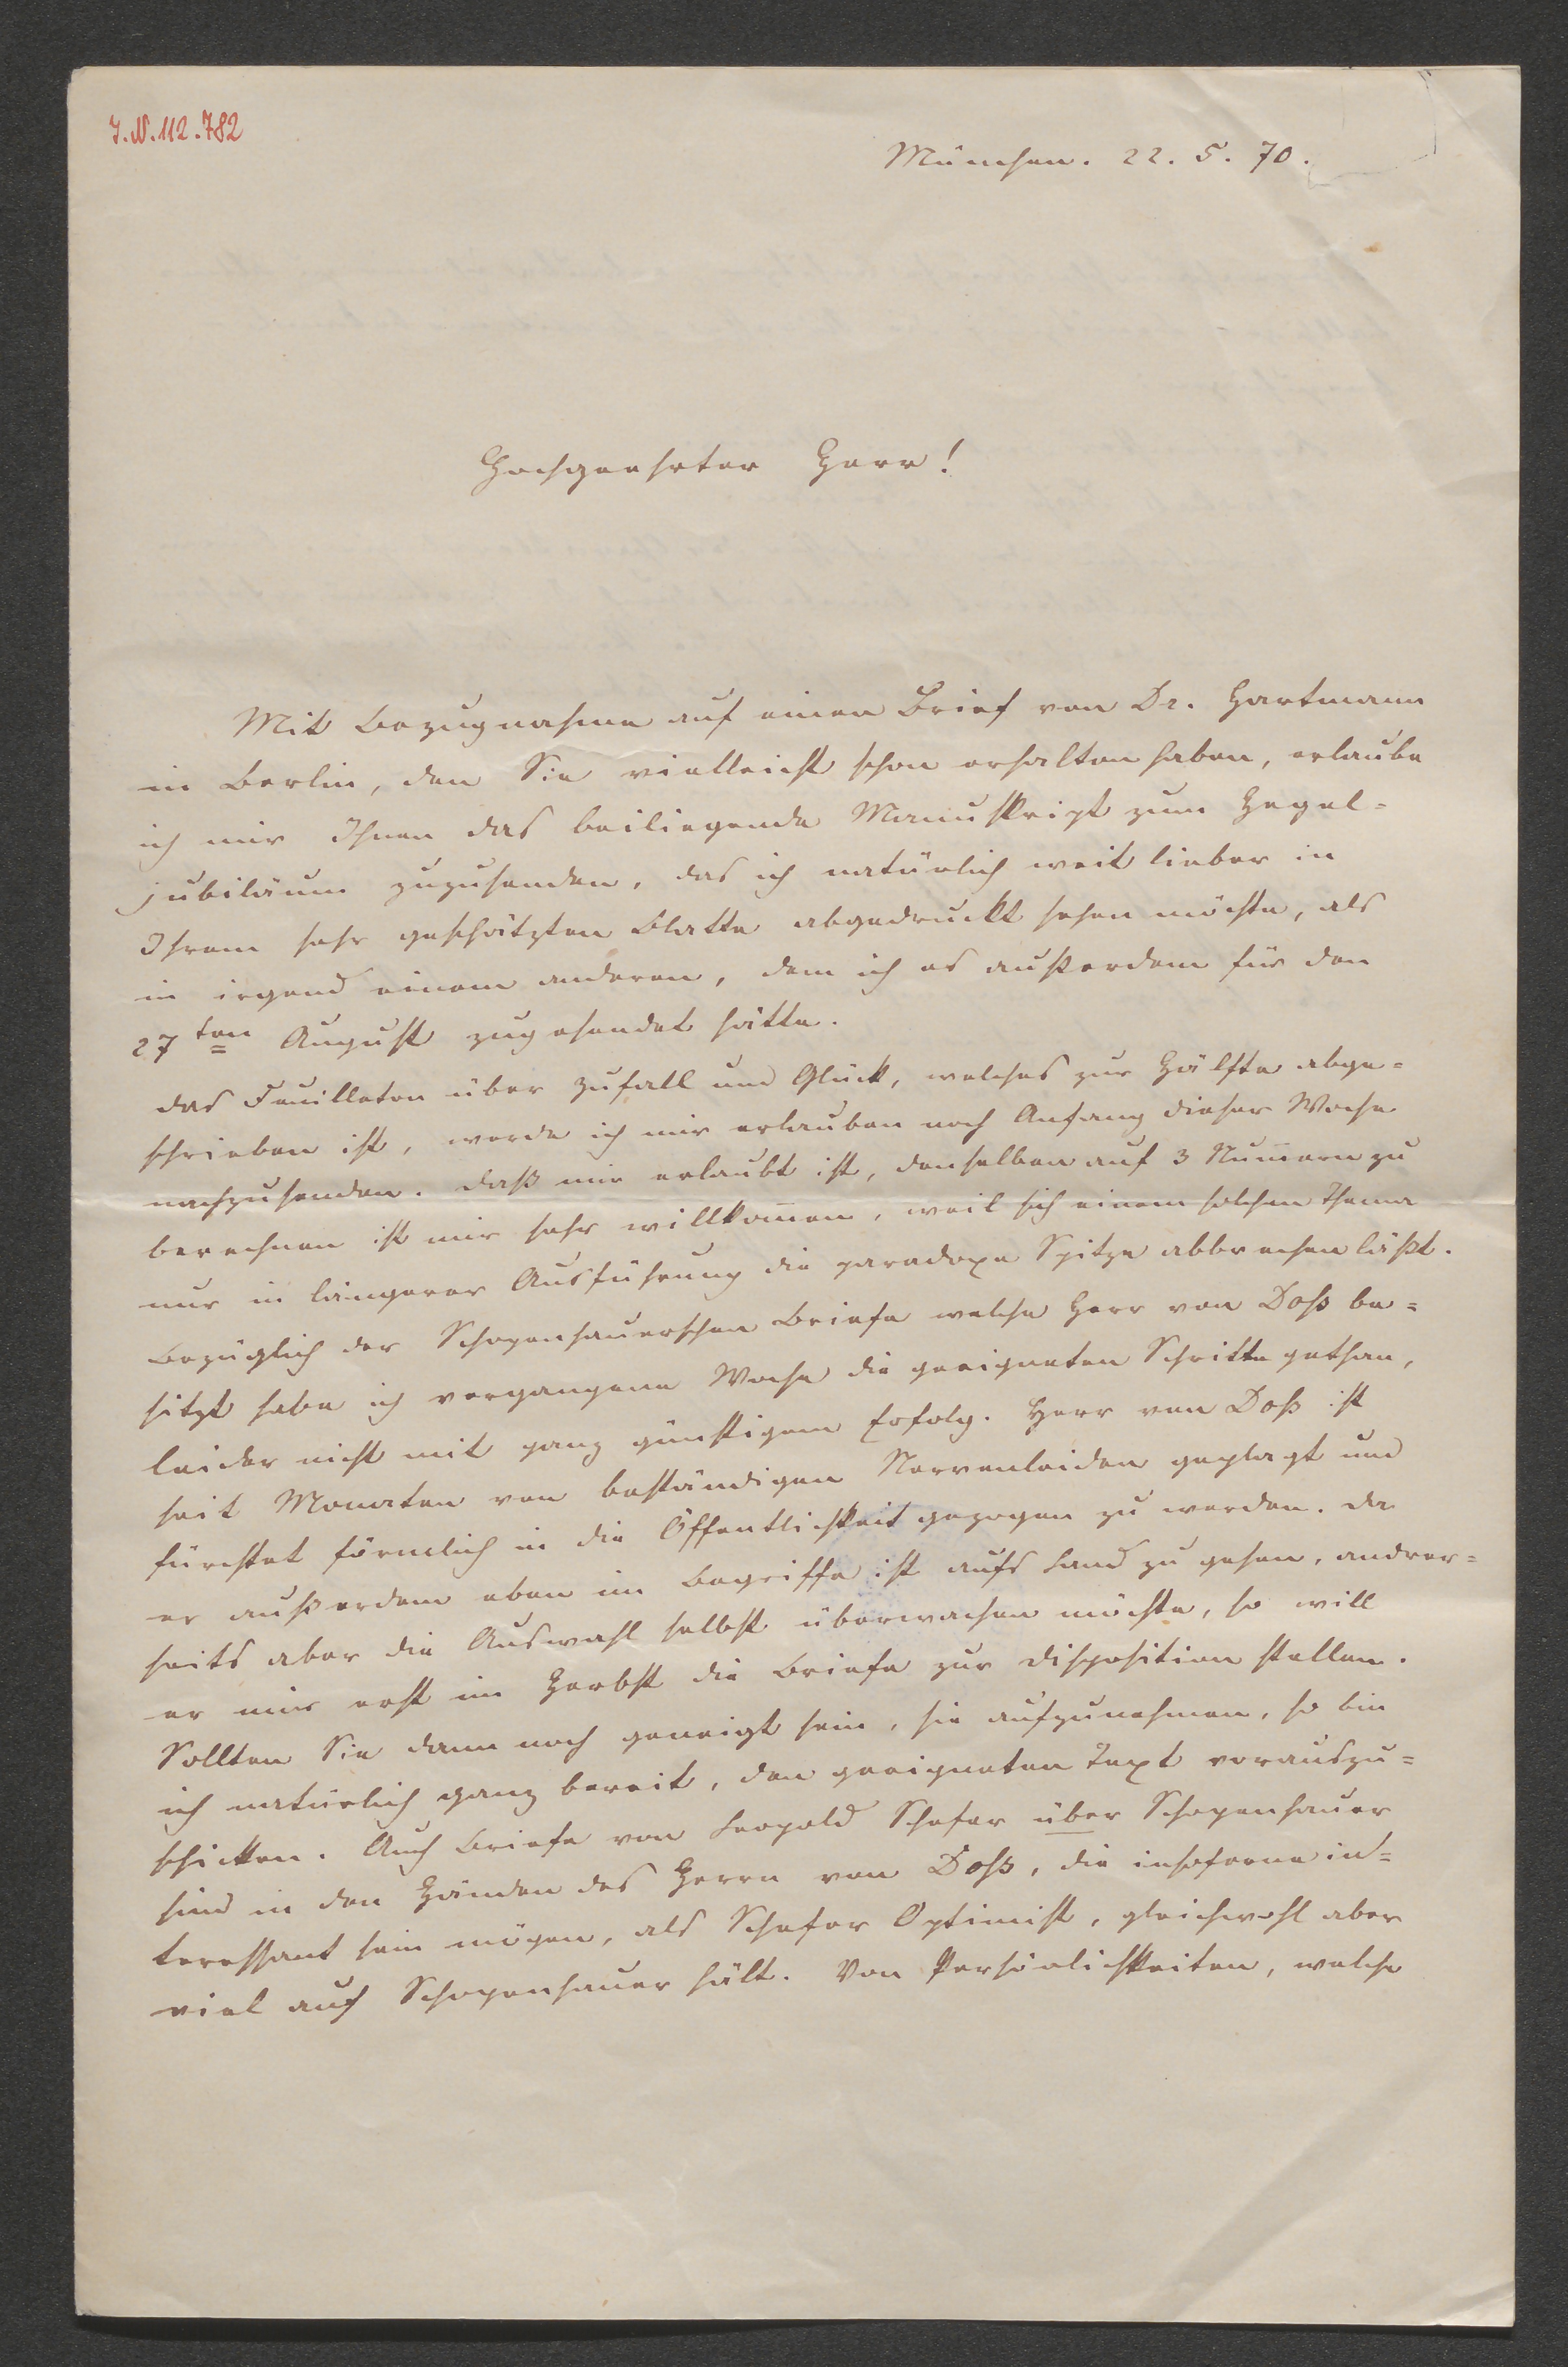 I.N.112.782
München. 22. 5. 70.
Hochgeehrter Herr!
Mit Bezugnahme auf einen Brief von Dr. Hartmann
in Berlin, den Sie vielleicht schon erhalten haben, erlaube
ich mir Ihnen das beiliegende Manuskript zum Hegel-
jubiläum zuzusenden, das ich natürlich weit lieber in
Ihrem sehr geschätzten Blatte abgedruckt sehen möchte, als
in irgend einem anderen, dem ich es außerdem für den
27ten August zugesendet hätte.
Das Feuilleton über Zufall und Glück, welches zur Hälfte abge-
schrieben ist, werde ich mir erlauben noch Anfang dieser Woche
nachzusenden. Daß mir erlaubt ist, denselben auf 3 Num̅ern zu
berechnen ist mir sehr willkom̅en, weil sich einem solchen Thema
nur in längerer Ausführung die paradoxe Spitze abbrechen läßt.
Bezüglich der Schopenhauerschen Briefe welche Herr von Doß be-
sitzt habe ich vergangene Woche die geeigneten Schritte gethan,
leider nicht mit ganz günstigem Erfolg. Herr von Doß ist
seit Monaten von beständigen Nervenleiden geplagt und
fürchtet förmlich in die Öffentlichkeit gezogen zu werden. Da
er außerdem eben im Begriffe ist aufs Land zu gehen, andrer-
seits aber die Auswahl selbst überwachen möchte, so will
er mir erst im Herbst die Briefe zur Disposition stellen.
Sollten Sie dann noch geneigt sein, sie aufzunehmen, so bin
ich natürlich ganz bereit, den geeigneten Text vorauszu-
schicken. Auch Briefe von Leopold Schefer über Schopenhauer
sind in den Händen des Herrn von Doß, die insoferne in-
teressant sein mögen, als Schefer Optimist, gleichwohl aber
viel auf Schopenhauer hält. Von Persönlichkeiten, welche